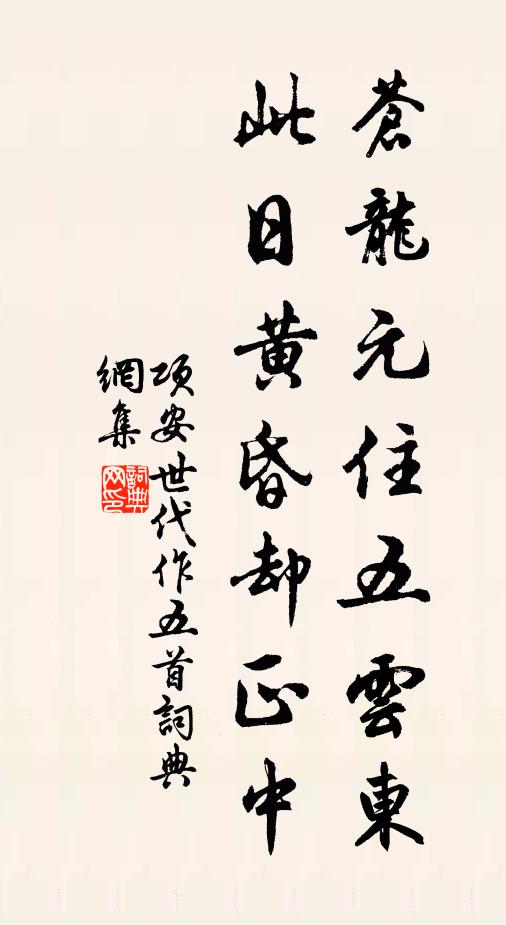 蒼龍元住五雲東
此日黃昏却正中
項安世代作五首詞典
網集
詞典網印